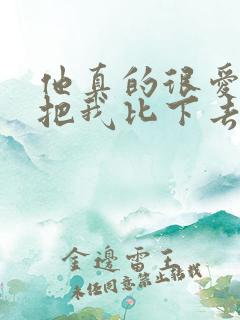 他真的很爱
把我比下去
金边雷王
未经同意禁止转载